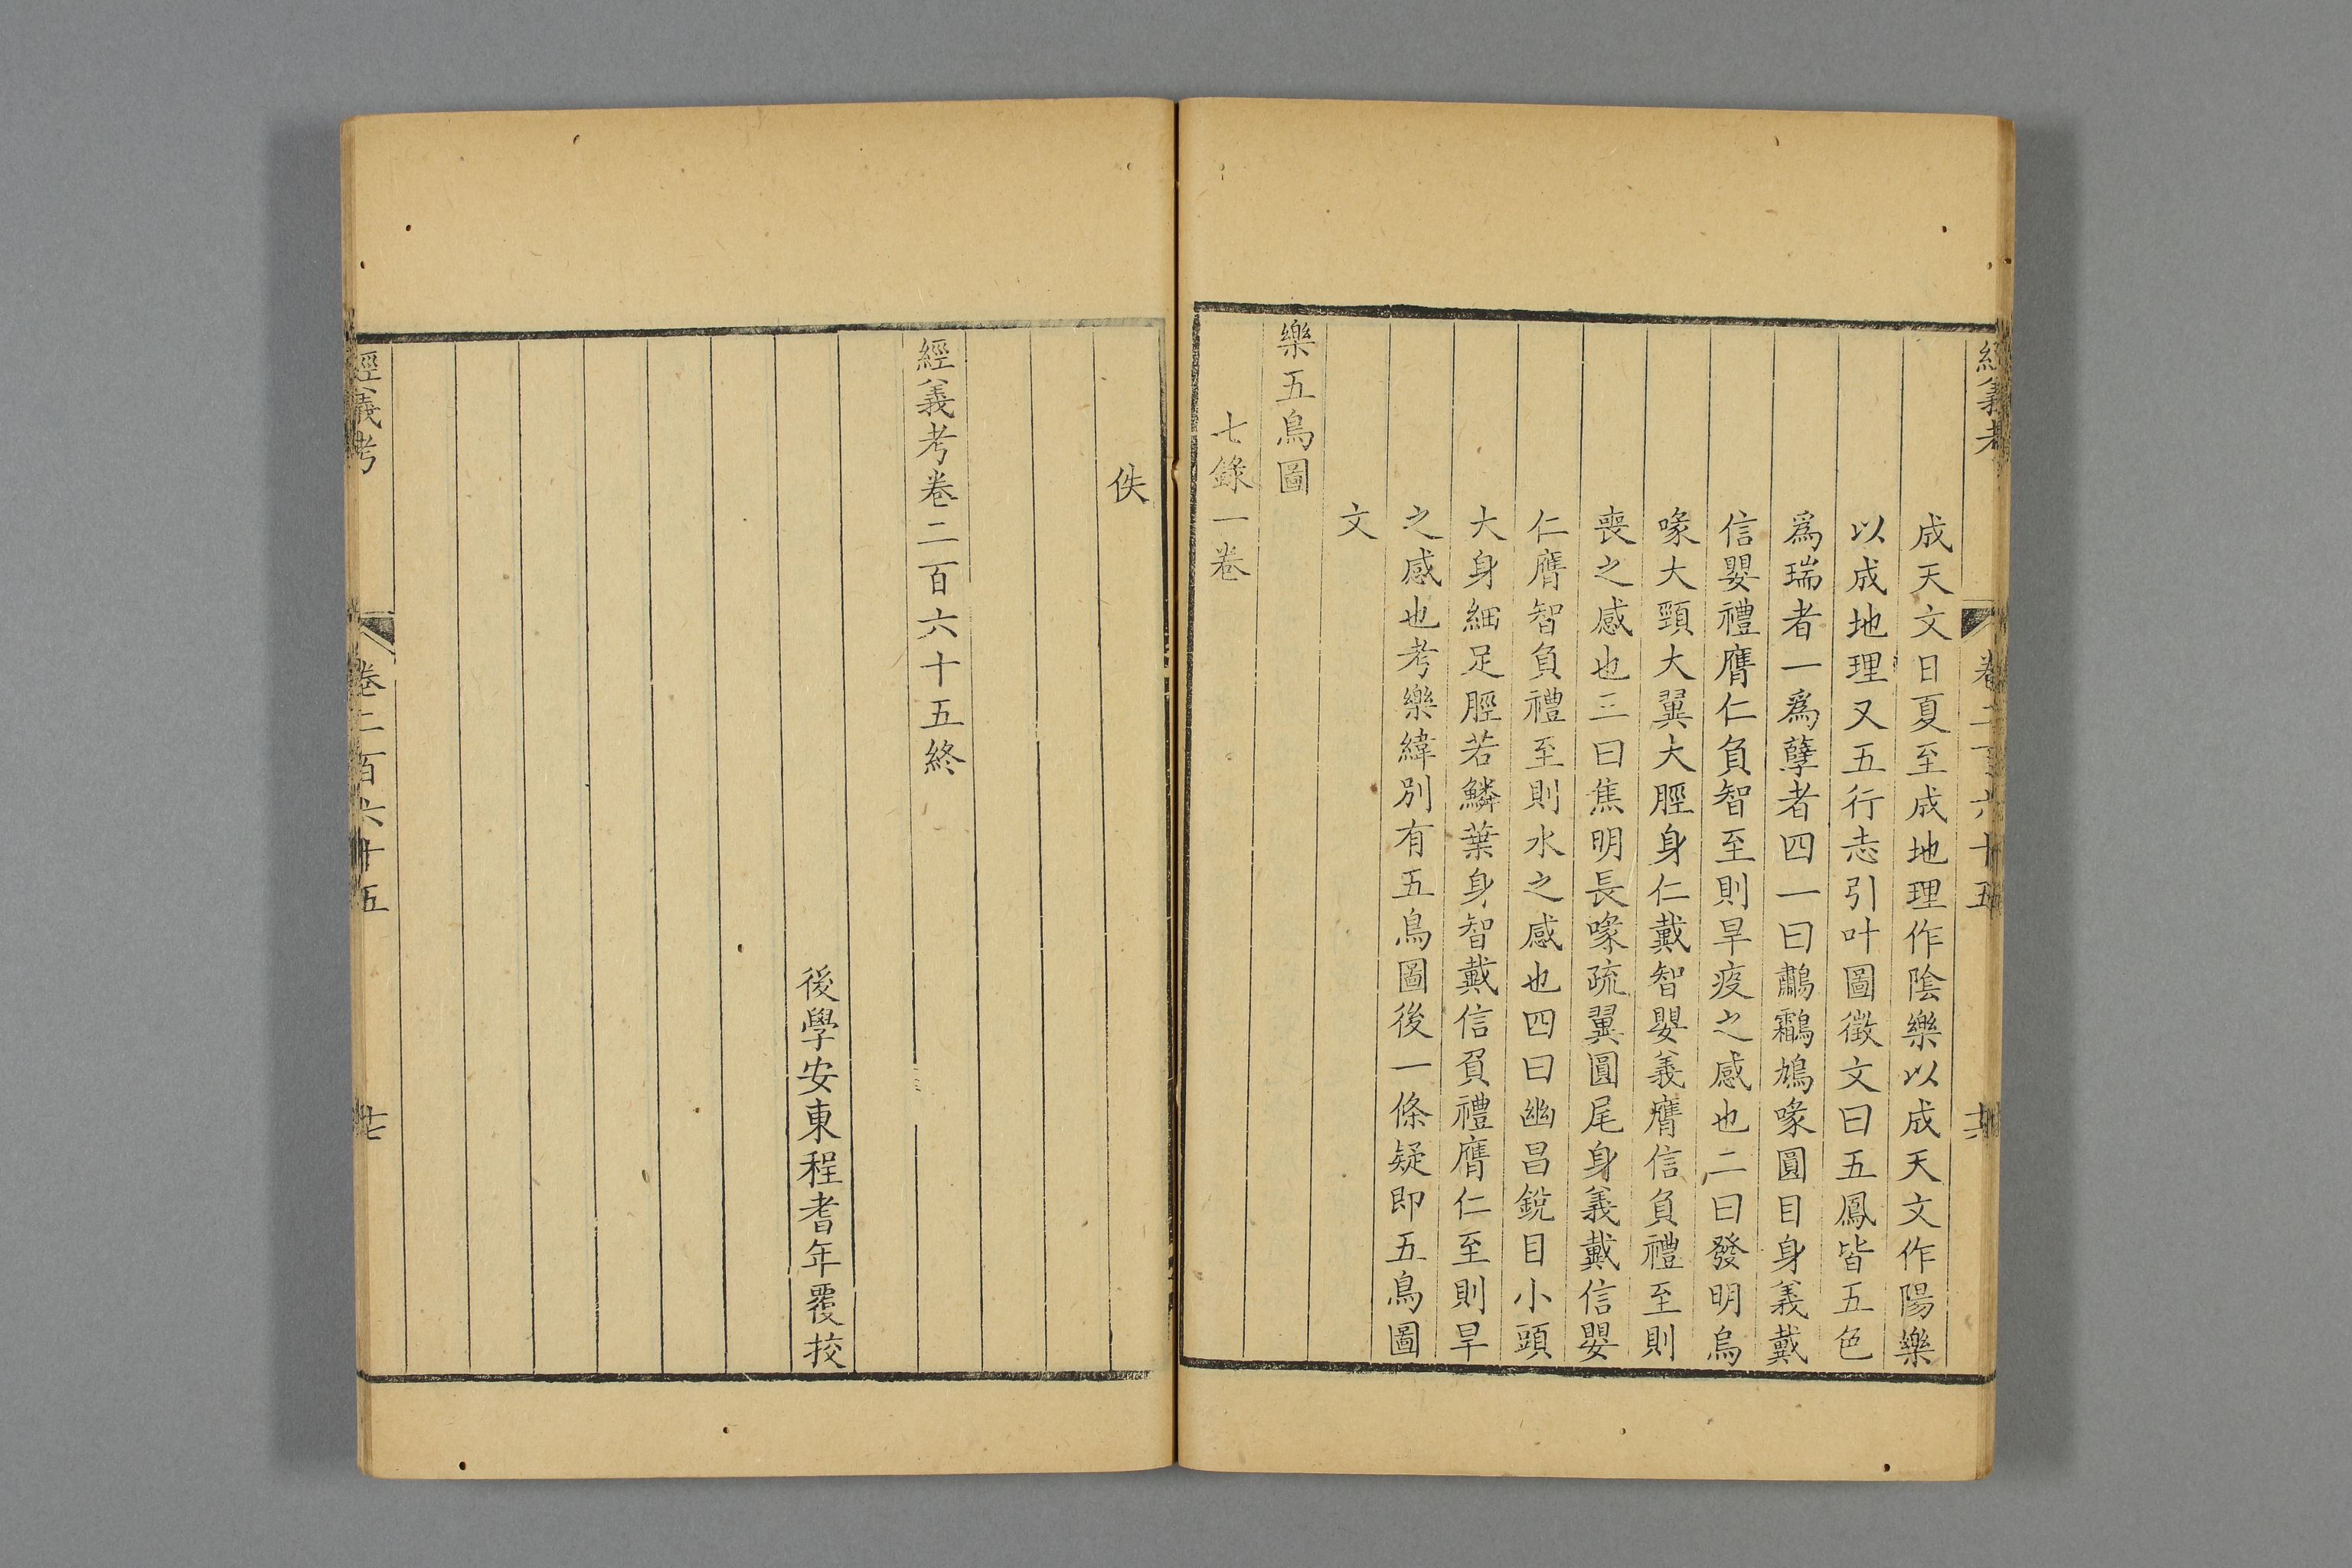 經義考 卷二百六十五
成天文日夏至成地理作陰樂以成天文作陽樂
以成地理又五行志引叶圖徵文曰五鳳皆五色
爲瑞者一爲孽者四一曰鷫鸘鳩喙圓目身義戴
信嬰禮膺仁負智至則旱疫之感也二曰發明烏
喙大頸大翼大脛身仁戴智嬰義膺信負禮至則
喪之感也三曰焦明長喙疏翼圓尾身義戴信嬰
仁膺智負禮至則水之感也四曰幽昌銳目小頭
大身細足脛若鱗葉身智戴信負禮膺仁至則旱
之感也考樂緯別有五鳥圖後一條疑即五鳥圖
文
樂五鳥圖
七錄一卷
佚
經義考卷二百六十五終
後學安東程耆年覆挍
經義考 卷二百六十五 七